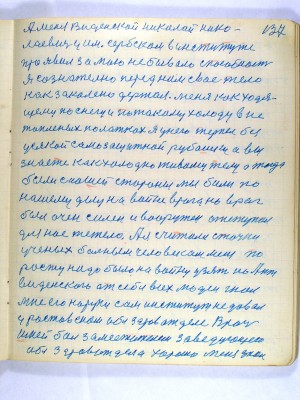 137
А меня Виденской Николай Нико-
лаевич, и им. Сербском в институте
проявил за мало небывало способност
Я сознателно перед ним свае тело
как заколено держал. меня как ходя-
щему по снегу и по такому холоду в не
топленых полатках Я умею терпен без
целкой самозащитной рубашки а вы
знаете как холодно живому телу а тогда
были с нашей стороны мы били по
нашему делу на войне врагдно враг
был очен силен и вооружен отступал
для нас тежело, А я считали с точки
ученых болным человеком меня по
росту надо было на войну узять но
виденского от себя всех людей гнал
мне его на руки сам институт не давал
у ростовском обл здравотделе Врач
шней бал заместителем заведующего
обл здравотдела хорошо меня знал